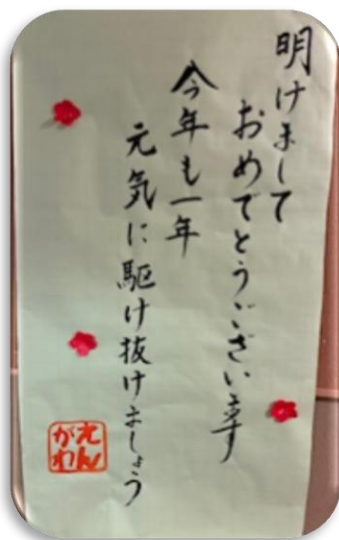 明けまして
おめでとうございます
今年も一年
元気に駆け抜けましょう